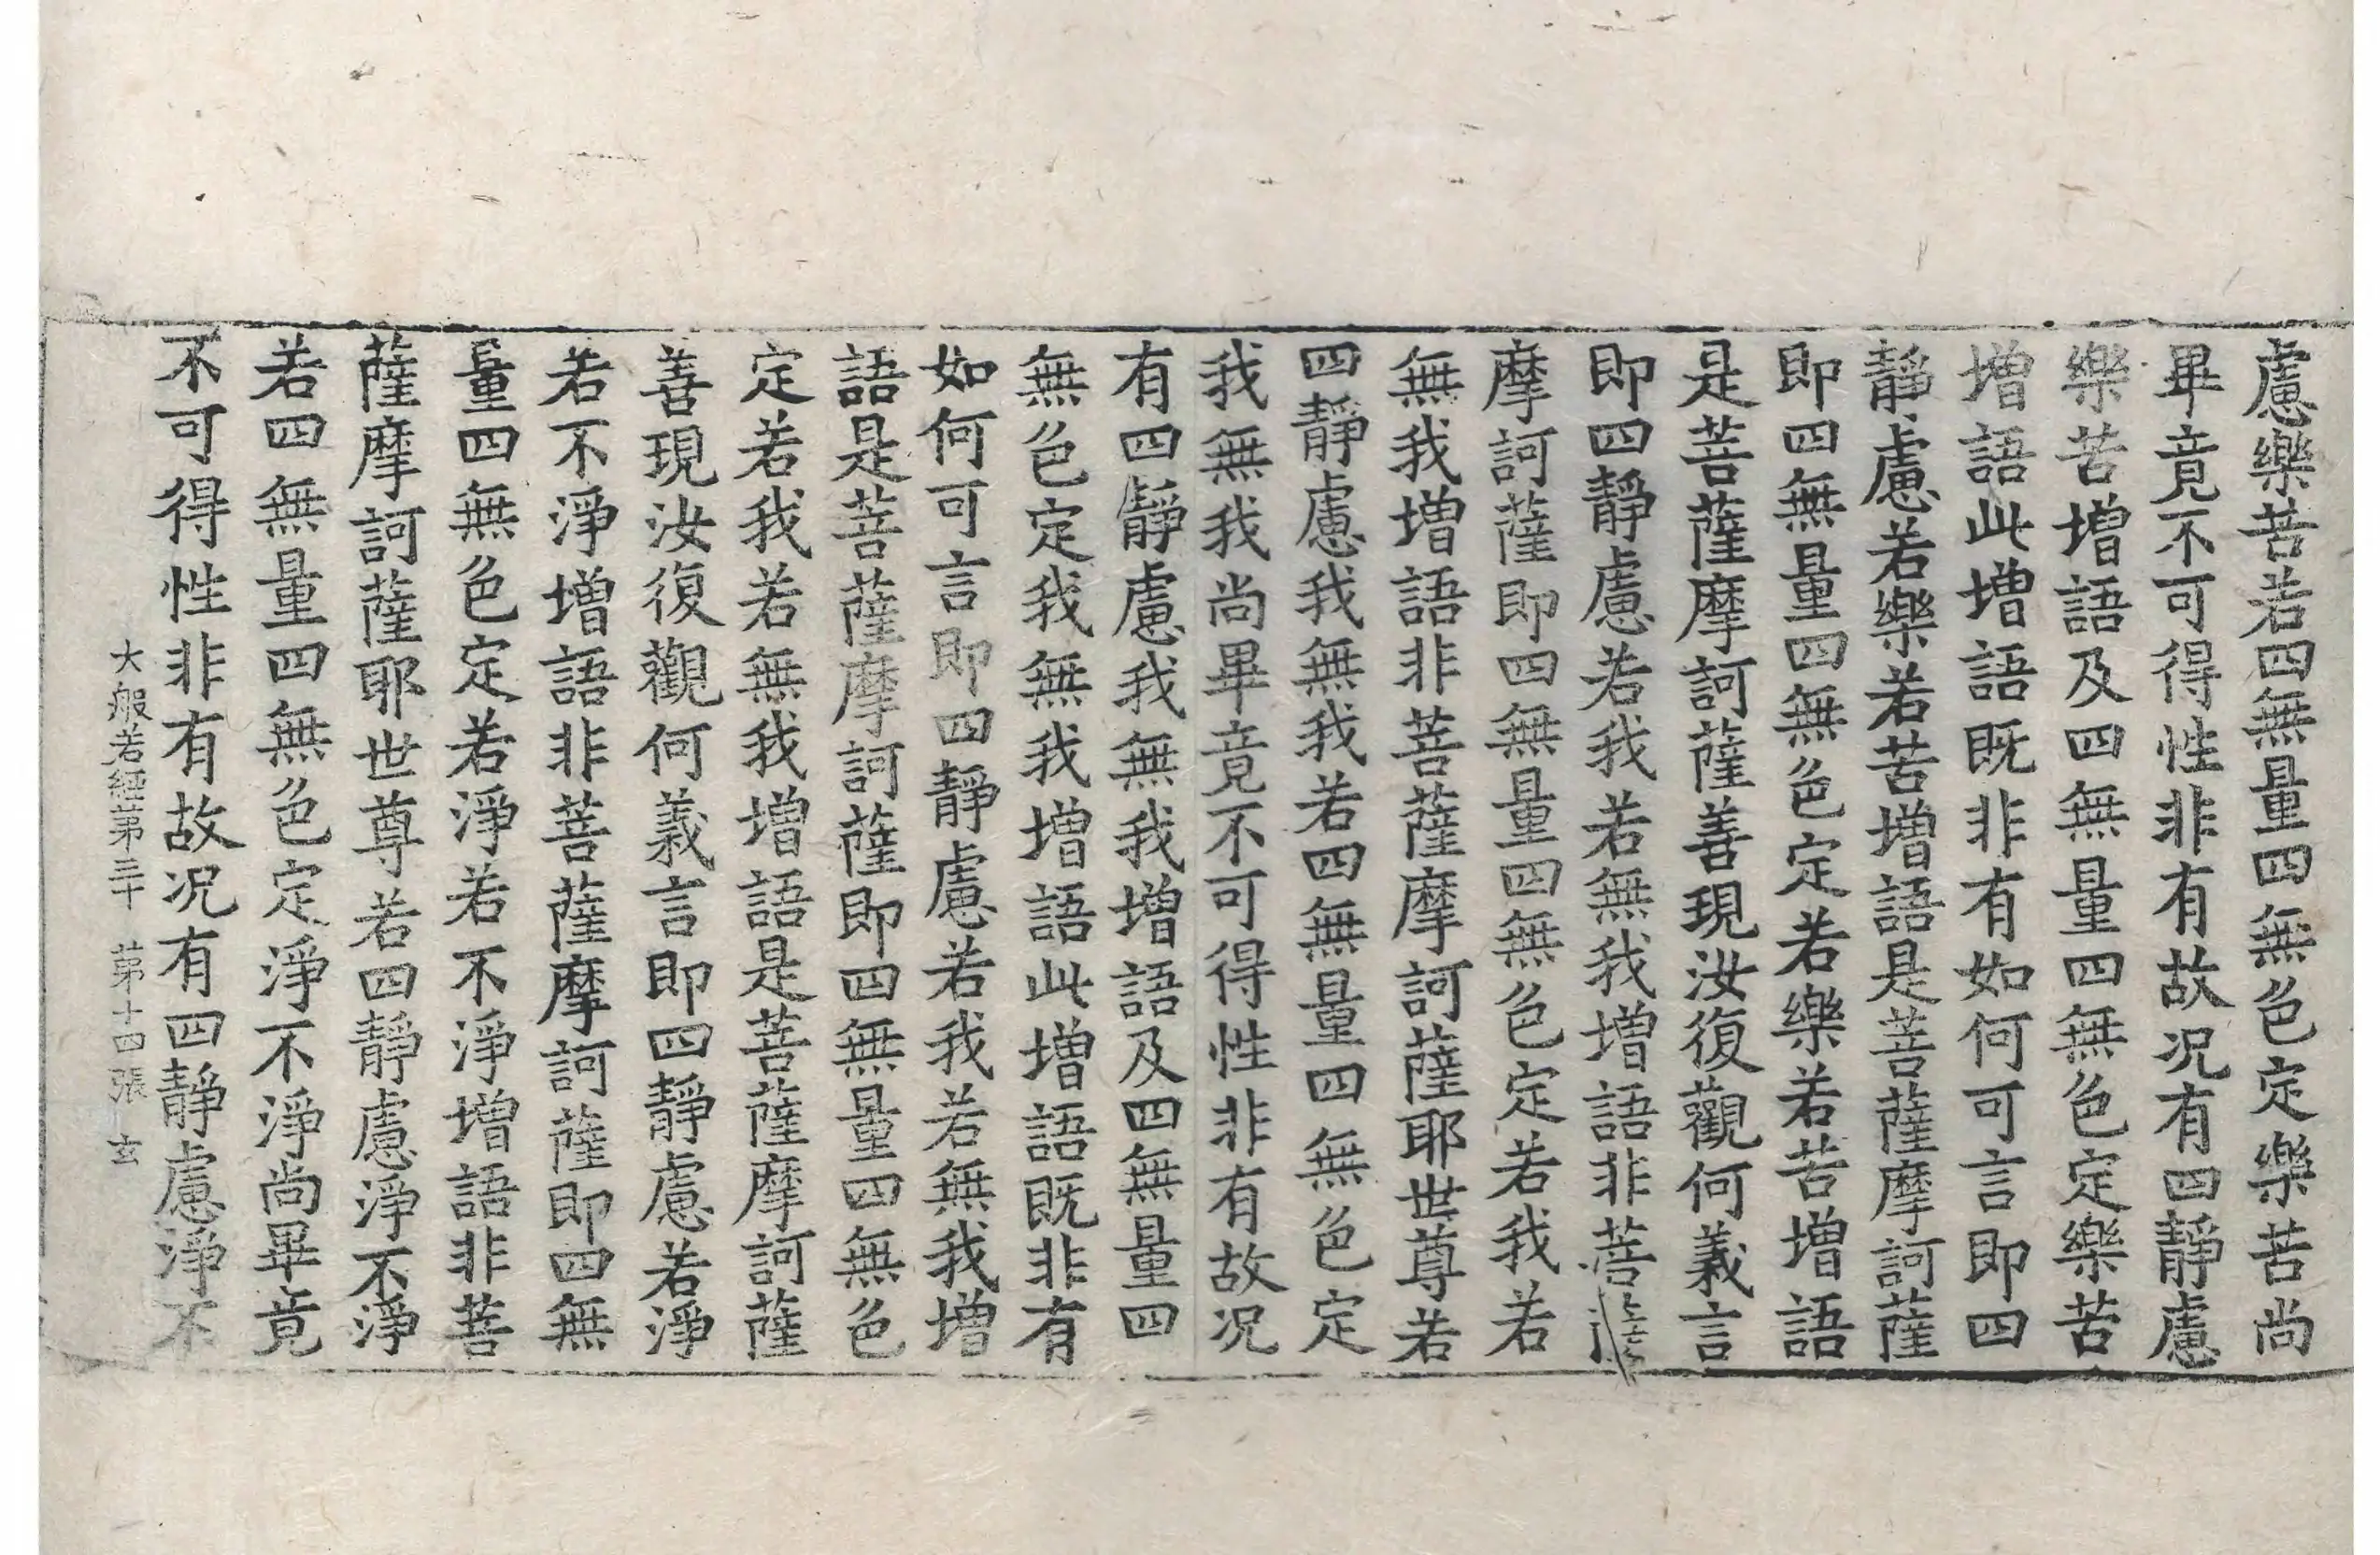 慮樂苦若四無量四無色定樂苦尚
畢竟不可得性非有故况有四靜慮
樂苦增語及四無量四無色定樂苦
增語此增語既非有如何可言即四
靜慮若樂若苦增語是菩薩摩訶薩
即四無量四無色定若樂若苦增語
是菩薩摩訶薩善現汝復觀何義言
即四靜慮若我若無我增語非菩薩
摩訶薩即四無量四無色定若我若
無我增語非菩薩摩訶薩耶世尊若
四靜慮我無我若四無量四無色定
我無我尚畢竟不可得性非有故况
有四靜慮我無我增語及四無量四
無色定我無我增語此增語既非有
如何可言即四靜慮若我若無我增
語是菩薩摩訶薩即四無量四無色
定若我若無我增語是菩薩摩訶薩
善現汝復觀何義言即四靜慮若淨
若不淨增語非菩薩摩訶薩即四無
量四無色定若淨若不淨增語非菩
薩摩訶薩耶世尊若四靜慮淨不淨
若四無量四無色定淨不淨尚畢竟
不可得性非有故况有四靜慮淨不
大般若經第三十 第十四張 玄